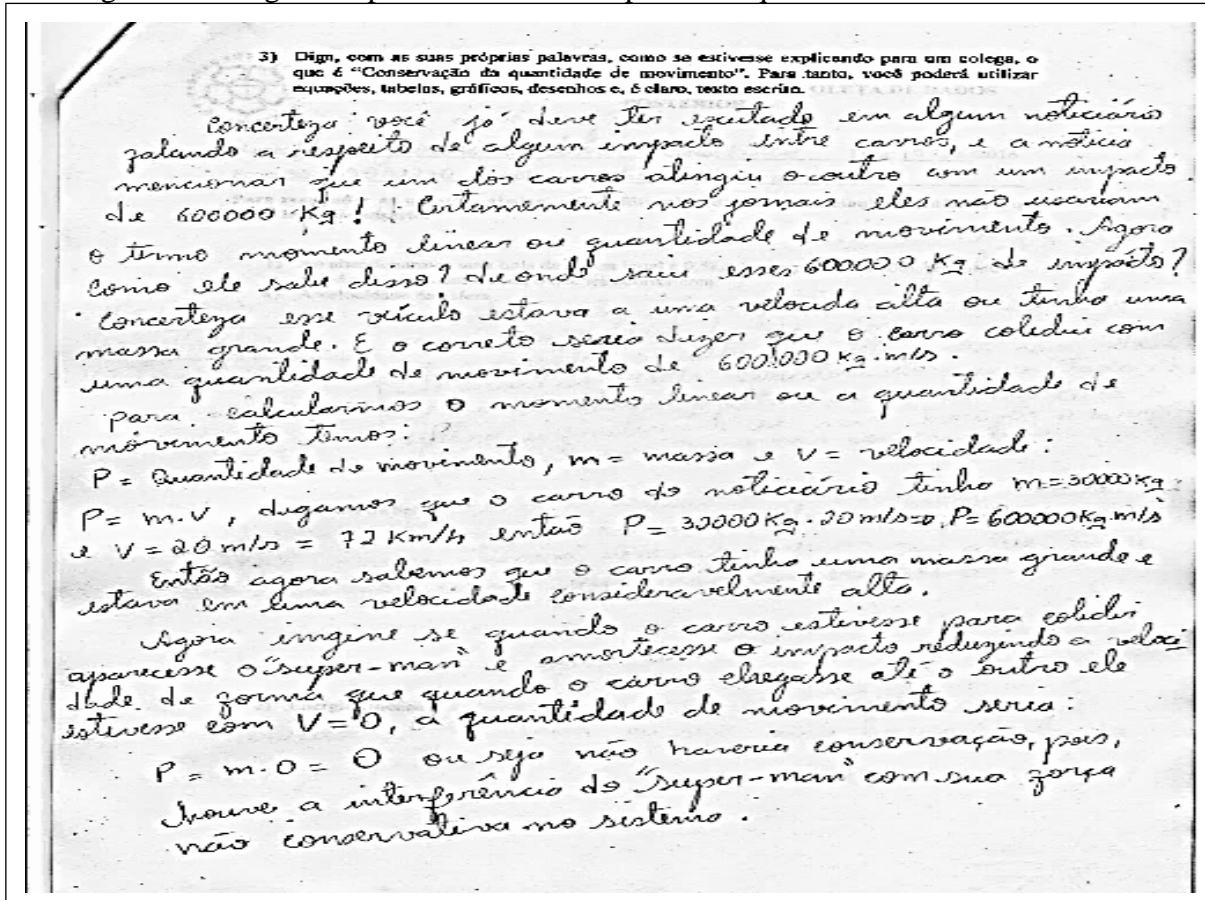 3) Diga, com as suas próprias palavras, como se estivesse explicando para um colega, o
que é “Conservação da quantidade de movimento”. Para tanto, você poderá utilizar
equações, tabelas, gráficos, desenhos e, é claro, texto escrito.
Concerteza você já deve ter escutado em algum noticiário
falando a respeito de algum impacto entre carros, e a notícia
mencionar que um dos carros atingiu o outro com um impacto
de 600000 Kg! Certamemente nos jornais eles não usariam
o termo momento linear ou quantidade de movimento. Agora
como ele sabe disso? de onde saiu esses 600000 Kg de impacto?
Concerteza esse veículo estava a uma velocida alta ou tinha uma
massa grande. E o correto seria dizer que o carro colidiu com
uma quantidade de movimento de 600.000 Kg.m/s.
Para calcularmos o momento linear ou a quantidade de
movimento temos:
P = Quantidade de movimento, m = massa e V = velocidade:
P = m.V, digamos que o carro do noticiário tinha m=30000Kg
e V = 20 m/s = 72 Km/h então P = 30000Kg.20m/s => P= 600000Kg m/s
Então agora sabemos que o carro tinha uma massa grande e
estava em uma velocidade consideravelmente alta.
Agora imgine se quando o carro estivesse para colidir
aparecesse o "super-man" e amortecesse o impacto reduzindo a veloci
dade de forma que quando o carro chegasse até o outro ele
estivesse com V = 0, a quantidade de movimento seria:
P = m.0 = 0 ou seja não haveria conservação, pois,
houve a interferência do "super-man" com sua força
não conservativa no sistema.